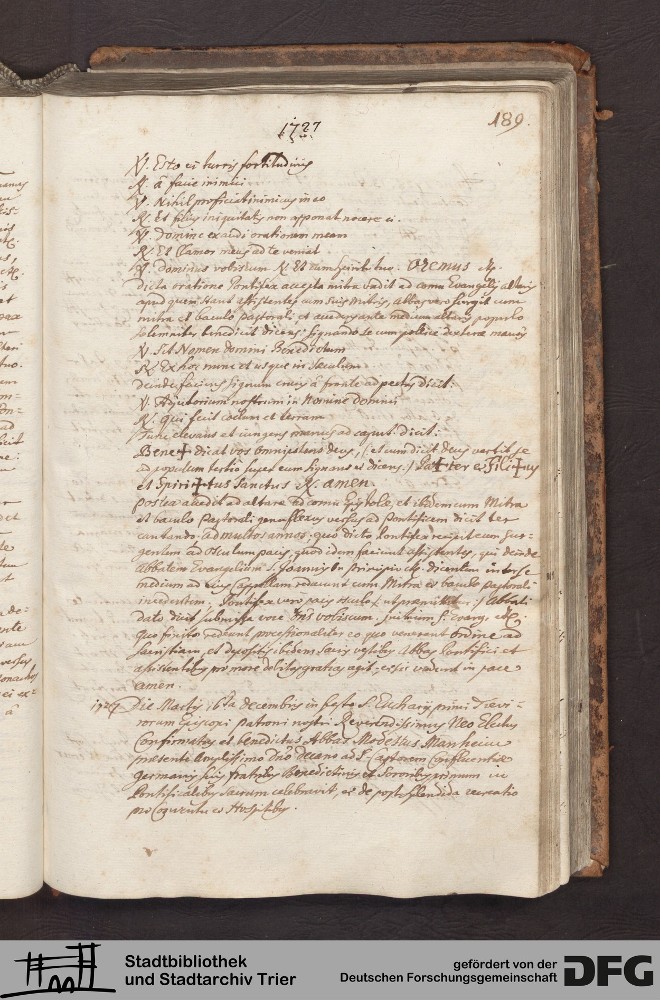 1727
189.
V. Esto ei turris fortitudinis
R. â facie inimici
V. Nihil proficiat inimicus in eo
R. Et filius iniquitatis non apponat nocere ei.
V. domine exaudi orationem meam
R. Et Clamor meus ad te veniat
V. dominus vobiscum R. Et cum spiritu tuo. Oremus
dicta oratione Pontifex accepta mitra vadit ad cornu Evangelij altaris
apud quem stant assistentes cum suis Mitris, Abbas vero surgit cum
mitra et baculo pastorali et ante medium altaris populo
solemniter benedicit dicens: signando se cum pollice dexteræ manus
V. Sit Nomen domini Benedictum
R. Ex hoc nunc et usque in sæculum
deinde faciens signum crucis â fronte ad pectus dicit:
V. Adjutorium nostrum in Nomine domini
R. qui fecit coelum et terram
Tunc elevans et iungens manus ad caput dicit:
Bene+dicat vos omnipotens deus, /: et cum dicit deus vertit se
ad populum tertio super eum signans et dicens :/ Pa+ter et Fili+us
et Spiri+tus Sanctus R. amen.
postea accedit ad altare ad cornu Epistolæ, et ibidem cum Mitra
et baculo Pastorali genuflexus versus ad Pontificem dicit ter
cantando: ad multos annos: quo dicto Pontifex recipit eum sur-
gentem ad osculum pacis, quod idem faciunt assistentes, qui deinde
Abbatem Evangelium S. Joannis In principio etc. dicentem inter se
medium ad eius Cappellam reducunt cum Mitra et baculo Pastorali
incedentem. Pontifex vero pacis osculo /: ut :/ Abbati
dato dicit submissa voce Dns vobiscum, Initium S. Evang. etc.
quo finito redeunt processionaliter eo quo venerant ordine ad
sacristiam, et depositis ibidem sacris vestibus Abbas Pontifici et
assistentibus pro more debitas gratias agit, et sic vadunt in pace
amen.
1727 Die Martis 16ta decembris in festo S. Eucharij primi Trevi-
rorum Episcopi Patroni nostri Reverendissimus Neo Electus
Confirmatus et benedictus Abbas Modestus Manheim
præsenti Amplissimo Dno Decano ad S. Castorem Confluentiæ
germanis suis fratribus Benedictinis et Sororibus primum in
Pontificalibus sacrum celebravit, et de post splendida recreatio
pro Conventu et Hospitibus.
Stadtbibliothek
und Stadtarchiv Trier
gefördert von der
Deutschen Forschungsgemeinschaft
DFG